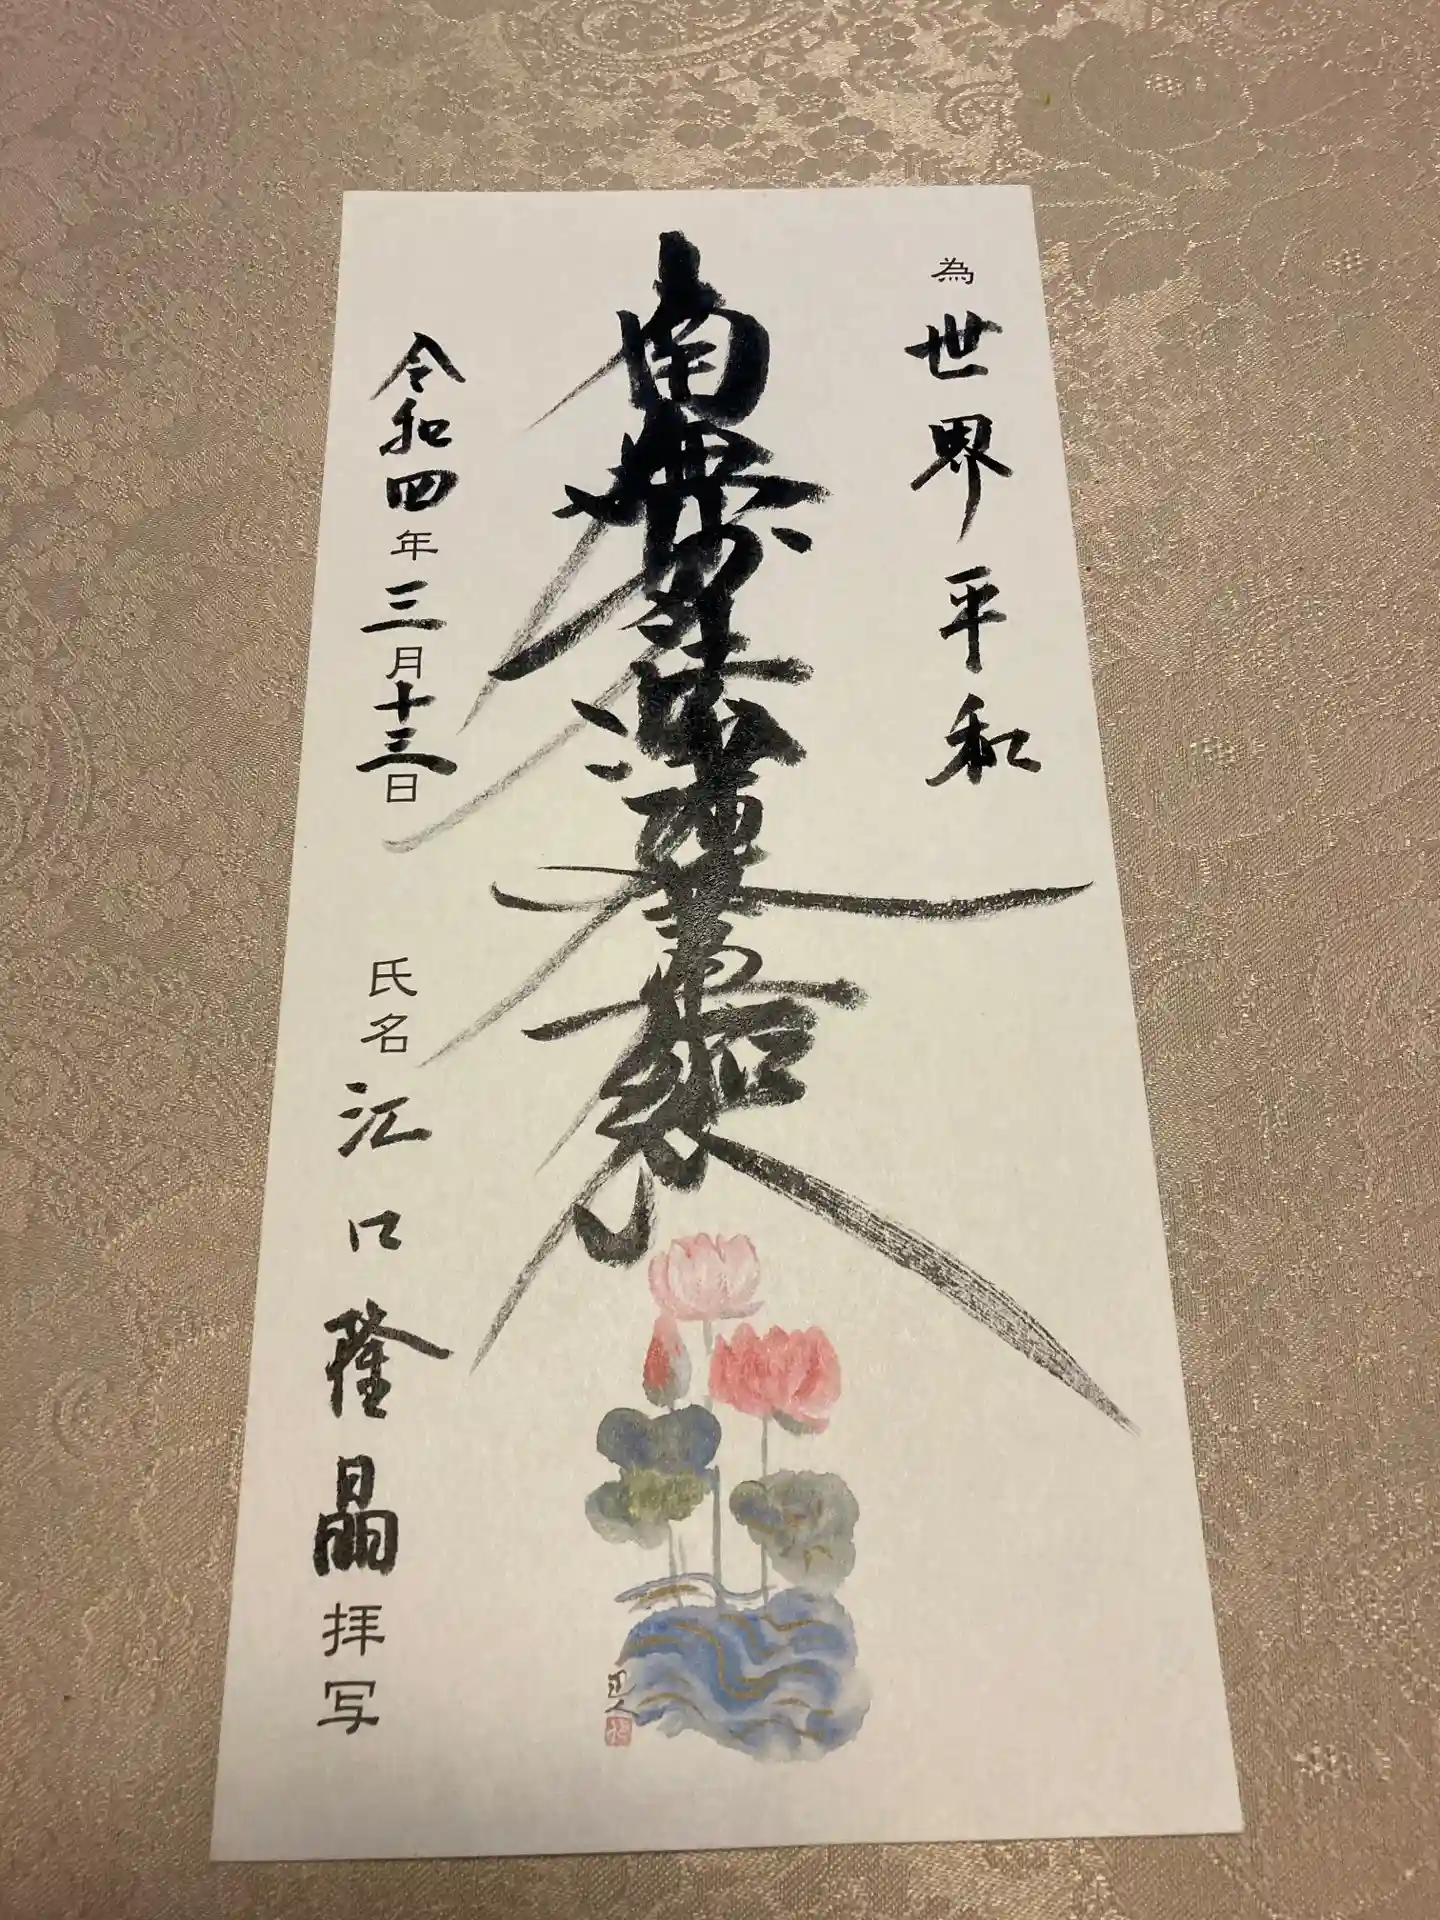 為世界平和
南無妙法蓮華經
令和四年三月十三日 氏名 江口隆晶 拝写